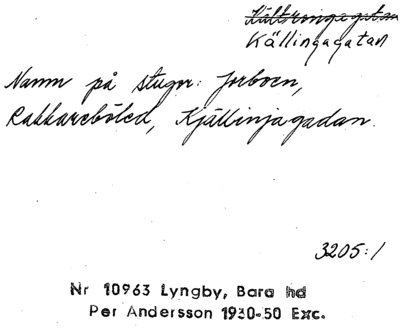 Källingagatan
Namn på stugor: Jorboen,
Rakkareböled, Kjällinjagadan.
3205:1
Nr 10963 Lyngby, Bara hd
Per Andersson 1930-50 Exc.